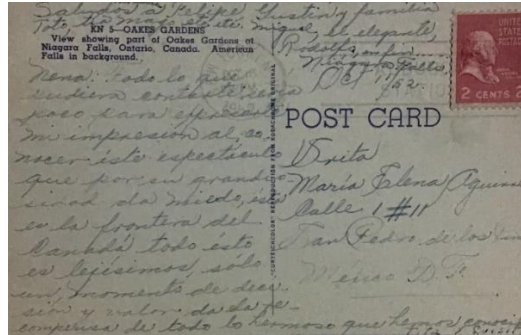 Saludos a Felipe Agustín y familia
KN 5—OAKES GARDENS
View showing part of Oakes Gardens at
Niagara Falls, Ontario, Canada. American
Falls in background.
el elegante,
Rodolfo, en fin
Niagara Falls
Oct
UNITED
STATES
POSTAGE
2 CENTS 2
POST CARD
Nena: Todo lo que
pudiera contarte sería
poco para expresar
mi impresión al co-
nocer éste espectáculo
que por su grandio-
sidad da miedo, ésta
es la frontera del
Canadá todo ésto
es lejísimos, sólo
un momento de deci-
sión y valor da la re-
compensa de todo lo hermoso que hemos conocido
"CURTEICHCOLOR" REPRODUCTION FROM KODACHROME ORIGINAL
María Elena
Calle 1 #11
San Pedro de los
México D.F.